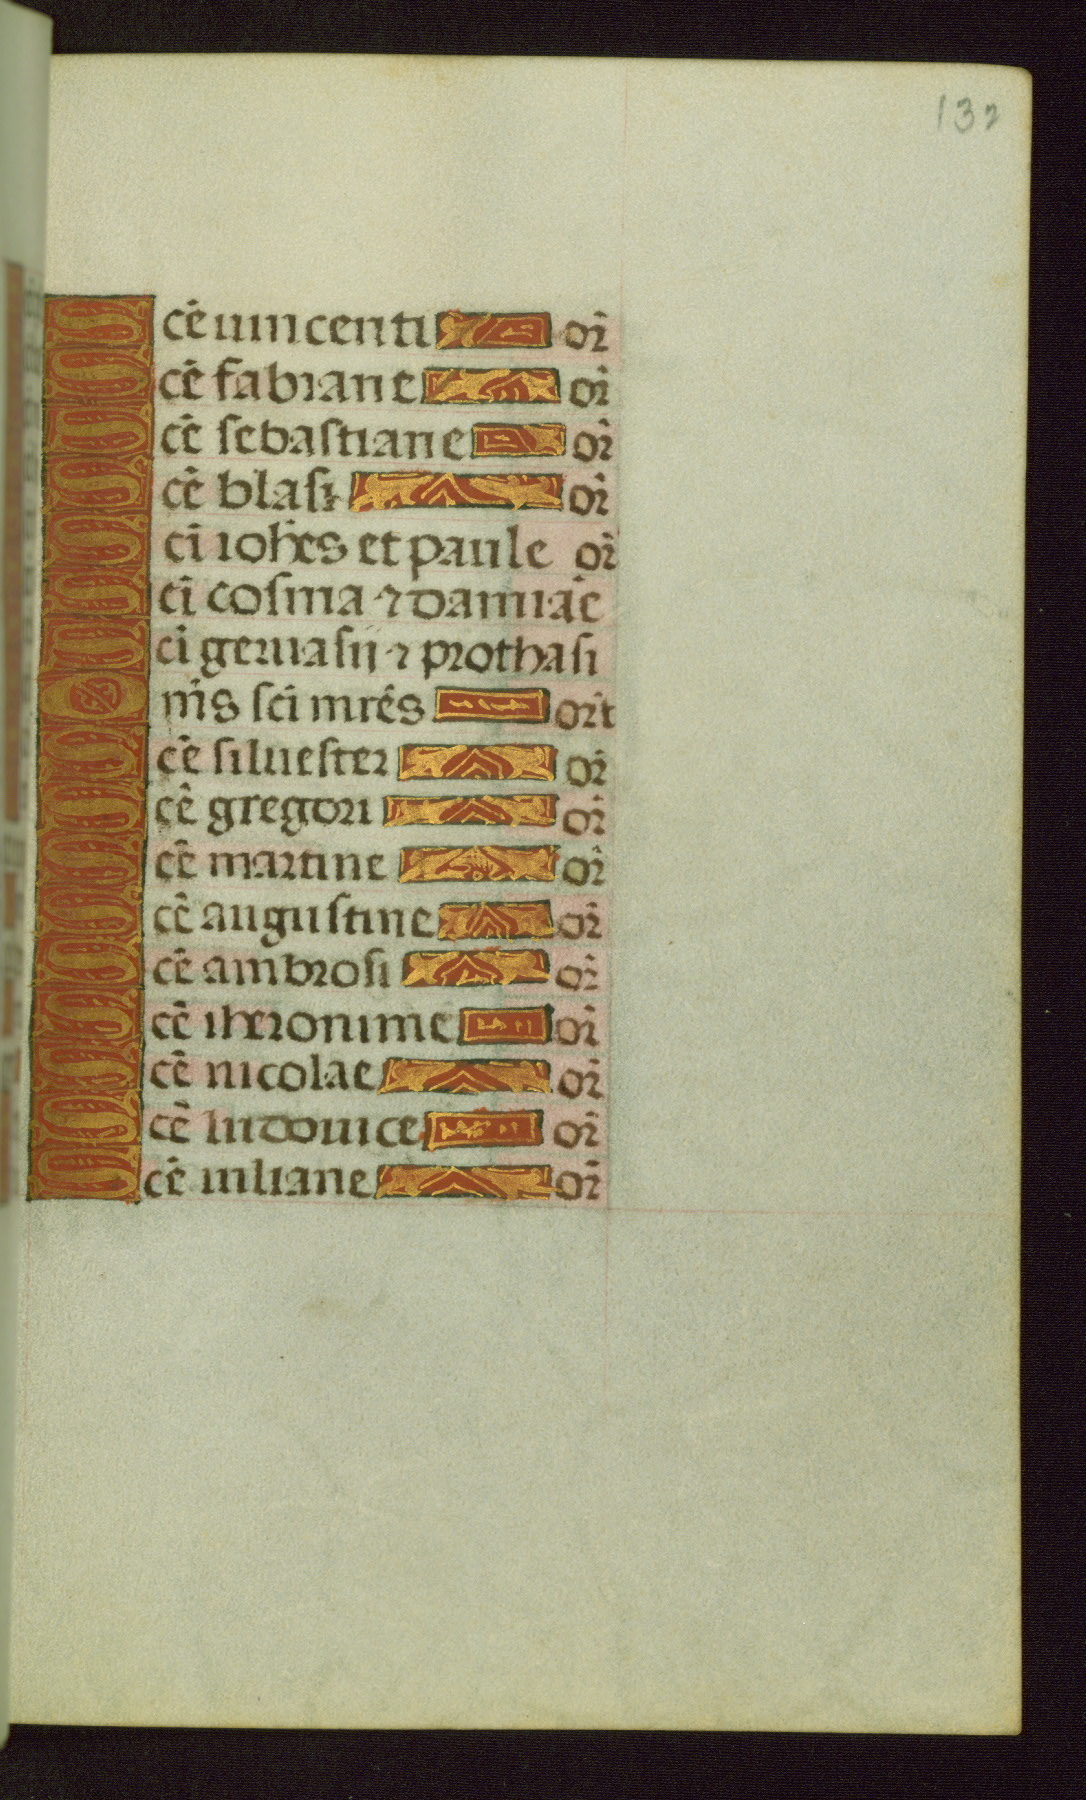 132
Scē uincenti or̄
Scē fabiane or̄
Scē sebastiane or̄
Scē blasi or̄
Sci̅ ioh̅es et paule or̄
Sci̅ cosma ⁊ damiāe
Sci̅ geruasii ⁊ prothasi
Om̅s sci̅ mr̅es or̄t
Scē siluester or̄
Scē gregori or̄
Scē martine or̄
Scē augustine or̄
Scē ambrosi or̄
Scē iheronime or̄
Scē nicolae or̄
Scē ludouice or̄
Scē iuliane or̄